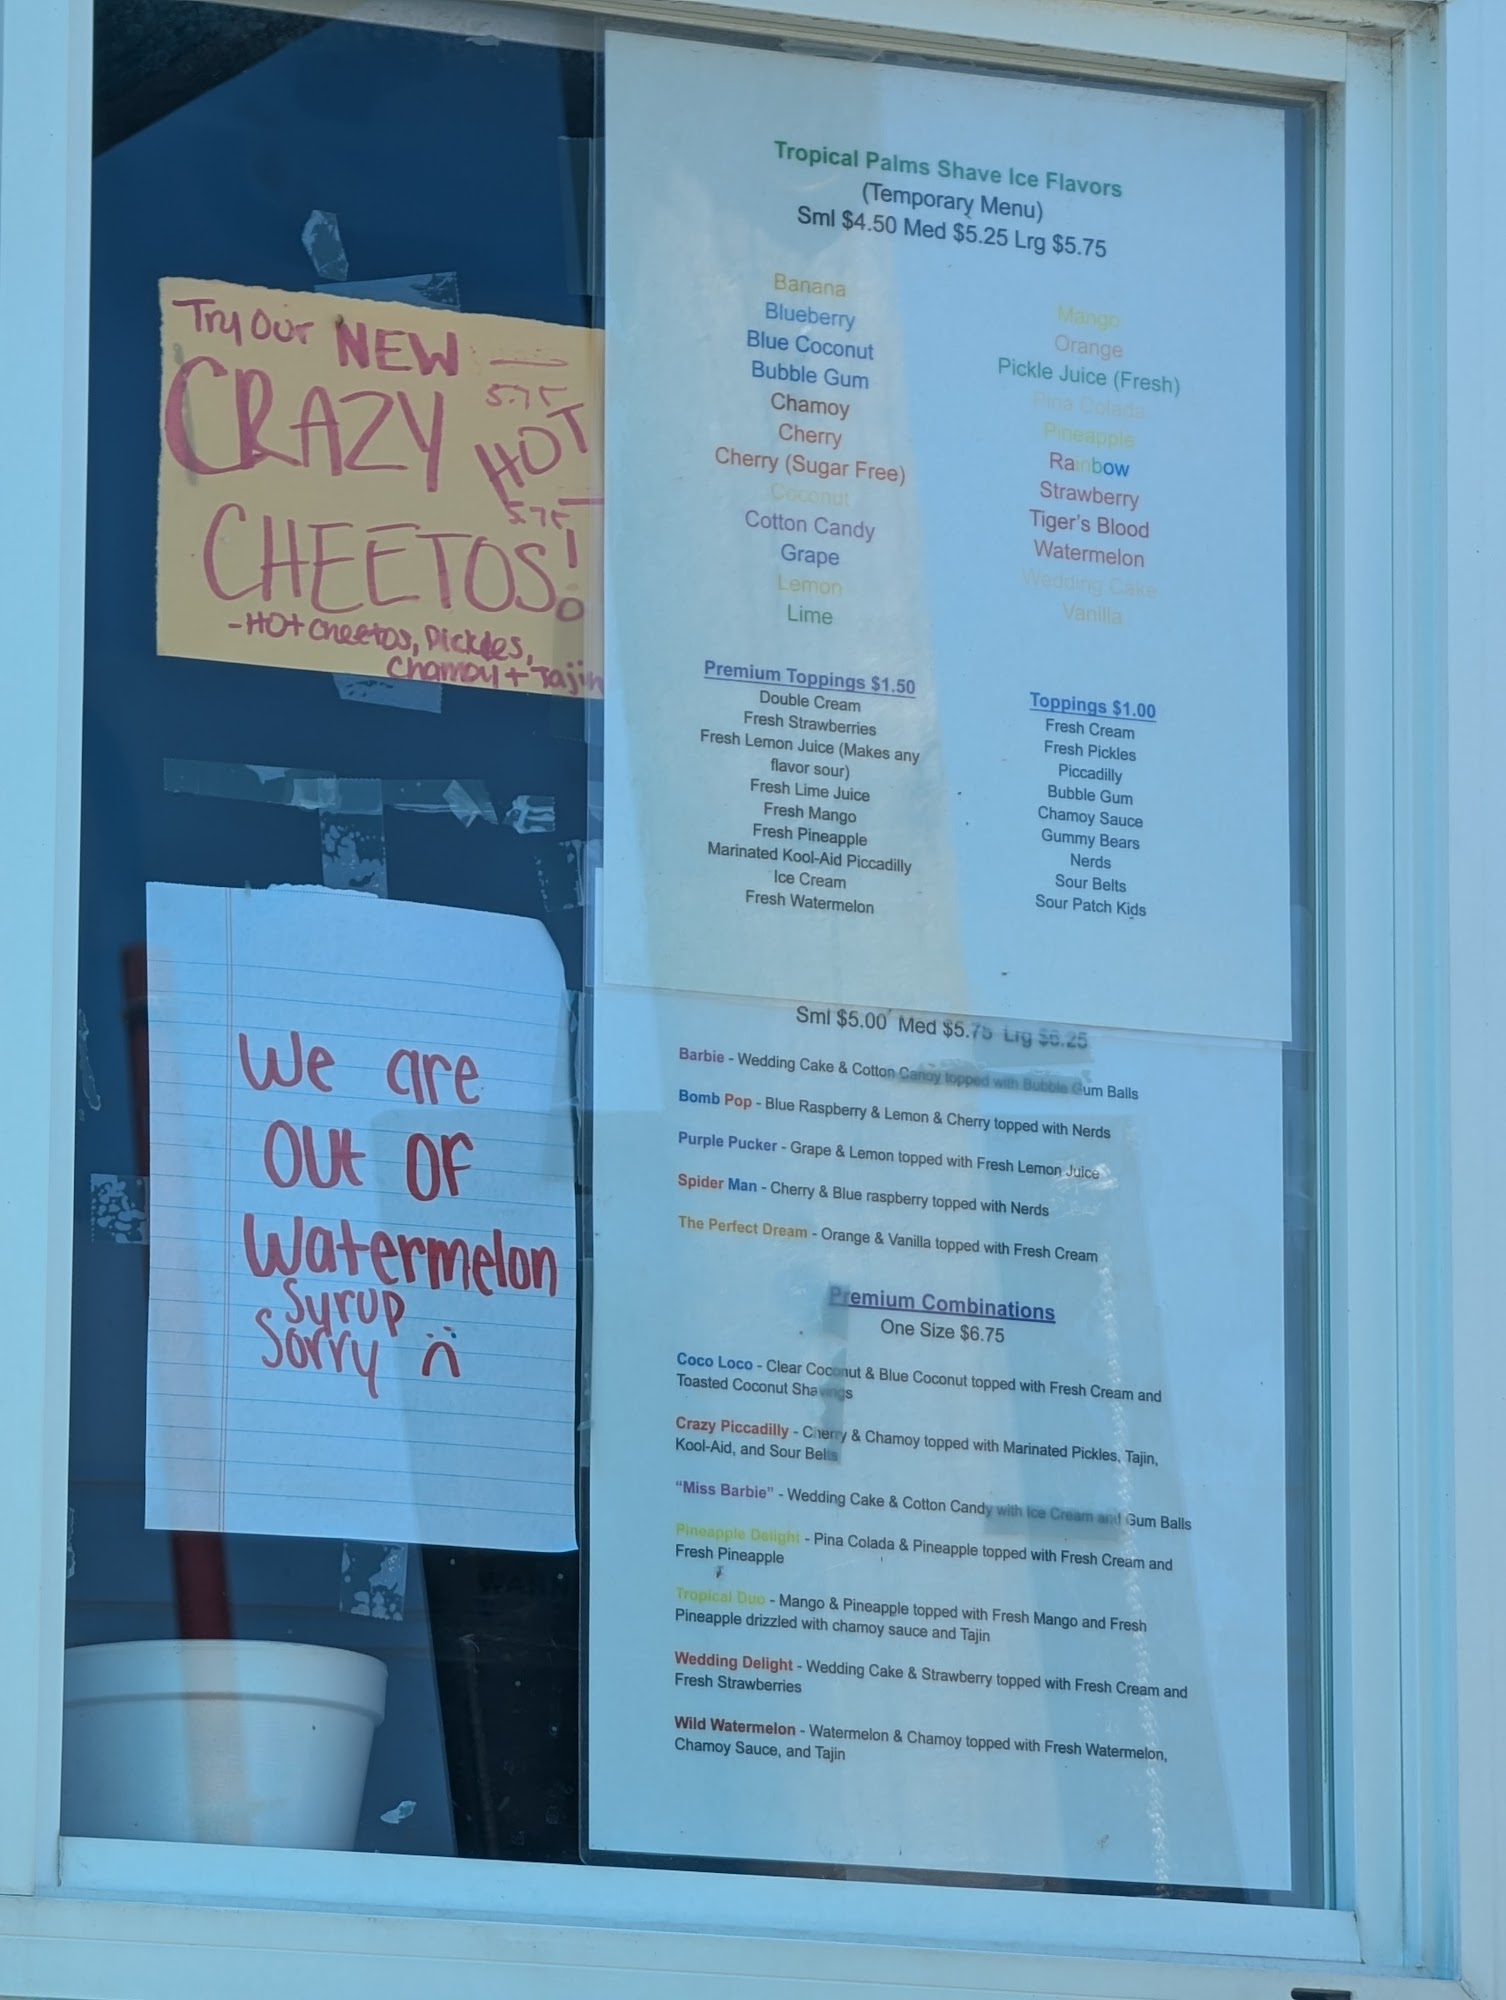 Try Our NEW
CRAZY HOT
5.75
5.75
CHEETOS!
-HOT Cheetos, Pickles,
Chamoy + Tajin
We are
out of
Watermelon
Syrup
Sorry :(
Tropical Palms Shave Ice Flavors
(Temporary Menu)
Sml $4.50 Med $5.25 Lrg $5.75
Banana
Blueberry
Blue Coconut
Bubble Gum
Chamoy
Cherry
Cherry (Sugar Free)
Coconut
Cotton Candy
Grape
Lemon
Lime
Mango
Orange
Pickle Juice (Fresh)
Pina Colada
Pineapple
Rainbow
Strawberry
Tiger's Blood
Watermelon
Wedding Cake
Vanilla
Premium Toppings $1.50
Double Cream
Fresh Strawberries
Fresh Lemon Juice (Makes any
flavor sour)
Fresh Lime Juice
Fresh Mango
Fresh Pineapple
Marinated Kool-Aid Piccadilly
Ice Cream
Fresh Watermelon
Toppings $1.00
Fresh Cream
Fresh Pickles
Piccadilly
Bubble Gum
Chamoy Sauce
Gummy Bears
Nerds
Sour Belts
Sour Patch Kids
Sml $5.00 Med $5.75 Lrg $6.25
Barbie - Wedding Cake & Cotton Candy topped with Bubble Gum Balls
Bomb Pop - Blue Raspberry & Lemon & Cherry topped with Nerds
Purple Pucker - Grape & Lemon topped with Fresh Lemon Juice
Spider Man - Cherry & Blue raspberry topped with Nerds
The Perfect Dream - Orange & Vanilla topped with Fresh Cream
Premium Combinations
One Size $6.75
Coco Loco - Clear Coconut & Blue Coconut topped with Fresh Cream and
Toasted Coconut Shavings
Crazy Piccadilly - Cherry & Chamoy topped with Marinated Pickles, Tajin,
Kool-Aid, and Sour Belts
"Miss Barbie" - Wedding Cake & Cotton Candy with Ice Cream and Gum Balls
Pineapple Delight - Pina Colada & Pineapple topped with Fresh Cream and
Fresh Pineapple
Tropical Duo - Mango & Pineapple topped with Fresh Mango and Fresh
Pineapple drizzled with chamoy sauce and Tajin
Wedding Delight - Wedding Cake & Strawberry topped with Fresh Cream and
Fresh Strawberries
Wild Watermelon - Watermelon & Chamoy topped with Fresh Watermelon,
Chamoy Sauce, and Tajin